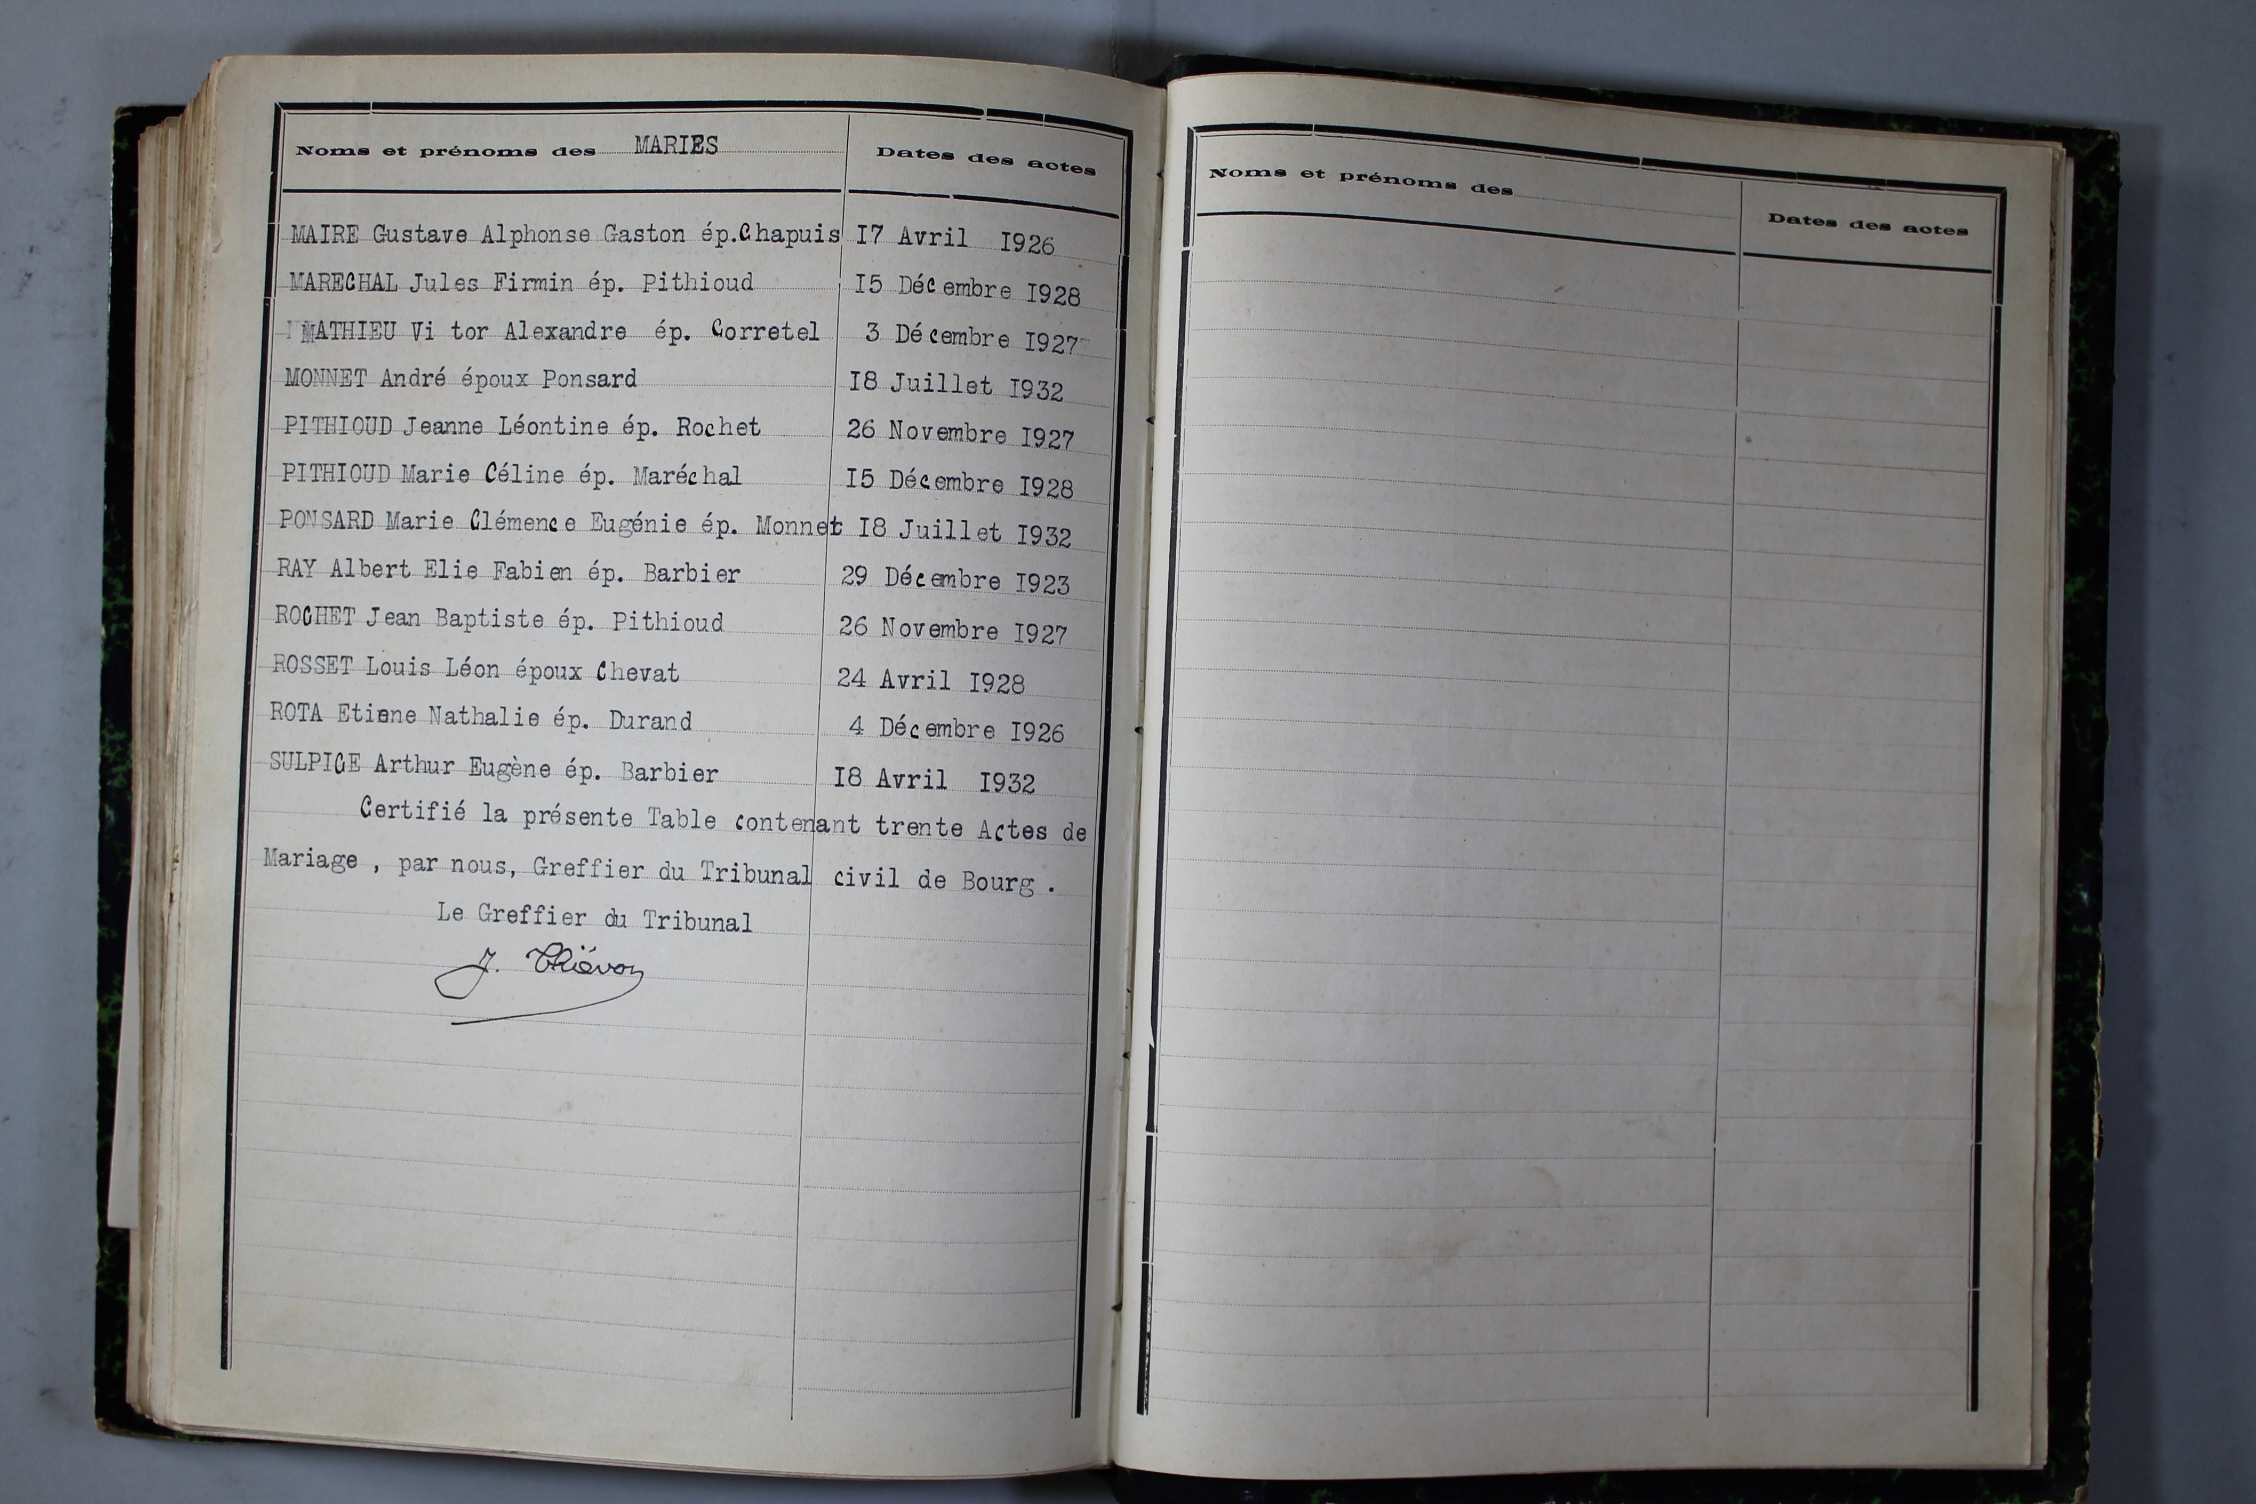 Noms et prénoms des MARIES Dates des actes
MAIRE Gustave Alphonse Gaston ép.Chapuis I7 Avril I926
MARECHAL Jules Firmin ép. Pithioud I5 Décembre I928
MATHIEU Vi tor Alexandre ép. Corretel 3 Décembre I927
MONNET André époux Ponsard I8 Juillet I932
PITHIOUD Jeanne Léontine ép. Rochet 26 Novembre I927
PITHIOUD Marie Céline ép. Maréchal I5 Décembre I928
PONSARD Marie Clémence Eugénie ép. Monnet I8 Juillet I932
RAY Albert Elie Fabien ép. Barbier 29 Décembre I923
ROCHET Jean Baptiste ép. Pithioud 26 Novembre I927
ROSSET Louis Léon époux Chevat 24 Avril I928
ROTA Etiene Nathalie ép. Durand 4 Décembre I926
SULPICE Arthur Eugène ép. Barbier I8 Avril I932
Certifié la présente Table contenant trente Actes de
Mariage , par nous, Greffier du Tribunal civil de Bourg .
Le Greffier du Tribunal
J. Thiévon
Noms et prénoms des Dates des actes